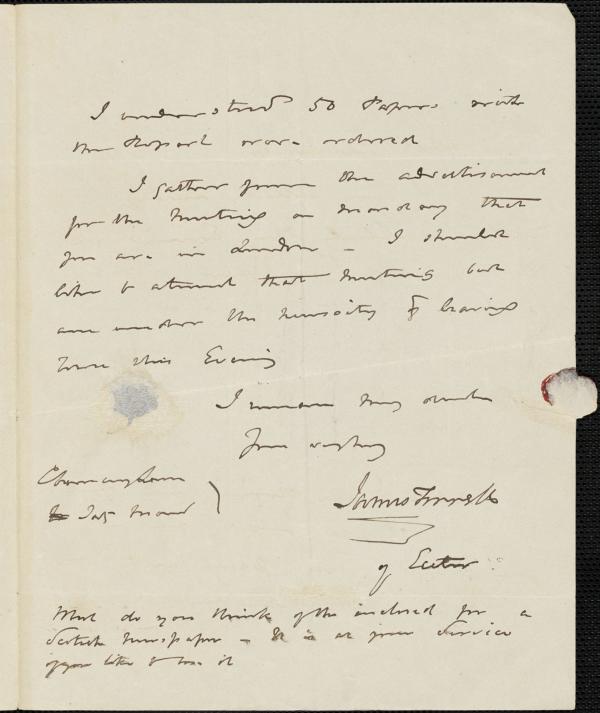 I understood 50 Papers with
the Report were ordered
I gather from the advertisement
for the Meeting on Monday that
you are in London - I should
like to attend that Meeting but
am under the necessity of leaving
Town this Evening
I remain my dear
Your
James
of Exeter
What do you think of the inclosed for a
Scotch Newspaper - It is at your Service
if you like to use it